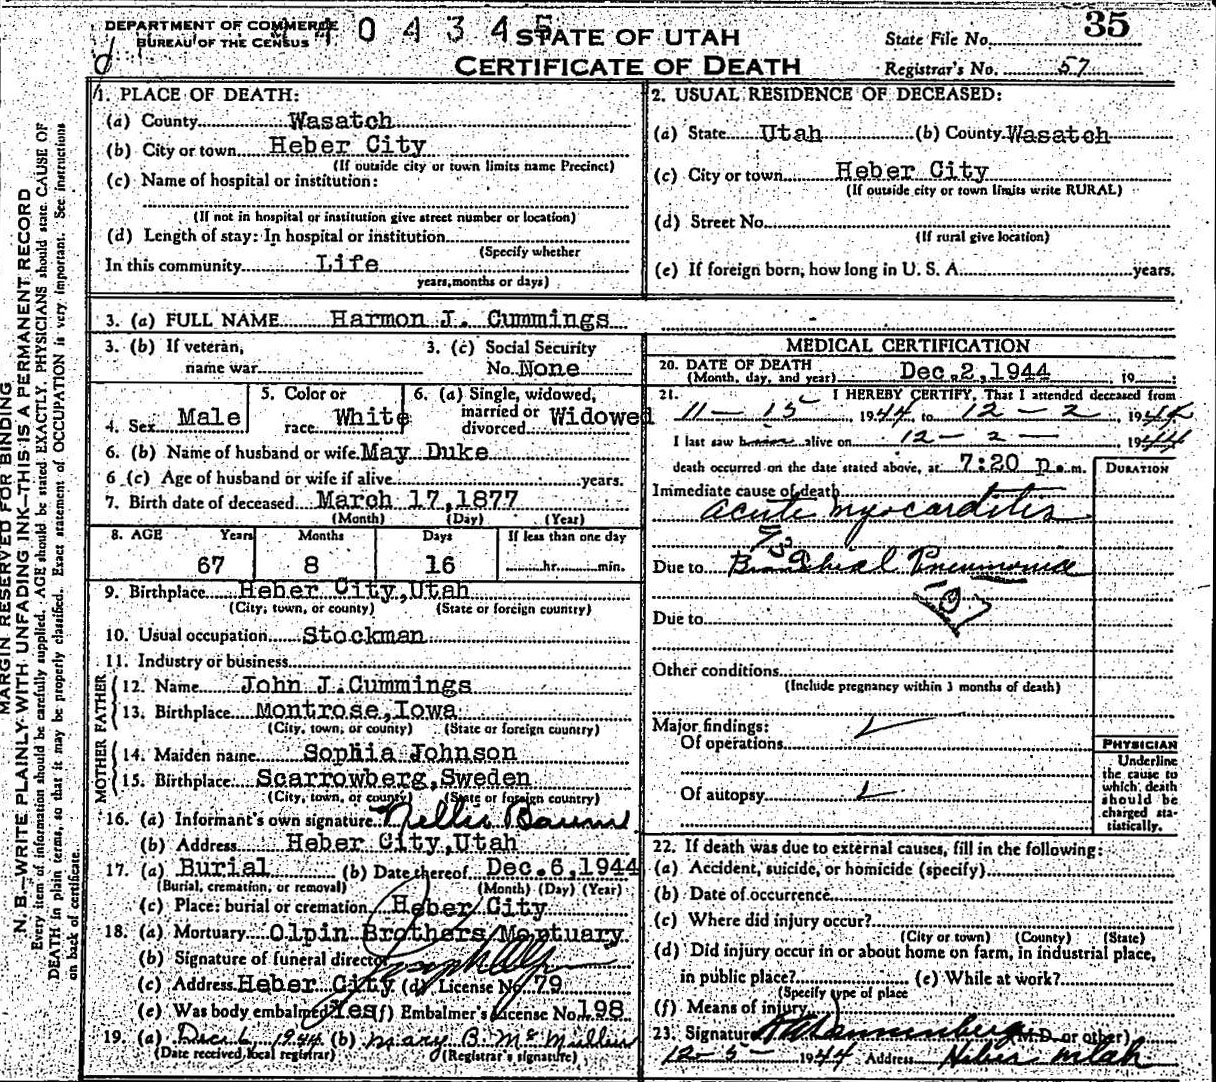 DEPARTMENT OF COMMERCE
BUREAU OF THE CENSUS
404345
STATE OF UTAH
CERTIFICATE OF DEATH
35
State File No.
Registrar's No. 57
MARGIN RESERVED FOR BINDING
N. B.—WRITE PLAINLY WITH UNFADING INK—THIS IS A PERMANENT RECORD
Every item of information should be carefully supplied. AGE should be stated EXACTLY. PHYSICIANS should state CAUSE OF
DEATH in plain terms, so that it may be properly classified. Exact statement of OCCUPATION is very important. See instructions
on back of certificate.
1. PLACE OF DEATH:
(a) County Wasatch
(b) City or town Heber City
(If outside city or town limits name Precinct)
(c) Name of hospital or institution:
(If not in hospital or institution give street number or location)
(d) Length of stay: In hospital or institution
(Specify whether
In this community Life
years, months or days)
2. USUAL RESIDENCE OF DECEASED:
(a) State Utah (b) County Wasatch
(c) City or town Heber City
(If outside city or town limits write RURAL)
(d) Street No.
(If rural give location)
(e) If foreign born, how long in U. S. A. years.
3. (a) FULL NAME Harmon J. Cummings
3. (b) If veteran, 3. (c) Social Security
name war No. None
4. Sex Male
5. Color or
race White
6. (a) Single, widowed,
married or
divorced Widowed
6. (b) Name of husband or wife May Duke
6 (c) Age of husband or wife if alive years.
7. Birth date of deceased March 17, 1877
(Month) (Day) (Year)
8. AGE Years Months Days If less than one day
67 8 16 hr. min.
9. Birthplace Heber City, Utah
(City, town, or county) (State or foreign country)
10. Usual occupation Stockman
11. Industry or business
FATHER
12. Name John J. Cummings
13. Birthplace Montrose, Iowa
(City, town, or county) (State or foreign country)
MOTHER
14. Maiden name Sophia Johnson
15. Birthplace Scarrowberg, Sweden
(City, town, or county) (State or foreign country)
16. (a) Informant's own signature Nellie Baum
(b) Address Heber City, Utah
17. (a) Burial (b) Date thereof Dec. 6, 1944
(Burial, cremation, or removal) (Month) (Day) (Year)
(c) Place: burial or cremation Heber City
18. (a) Mortuary Olpin Brothers Mortuary
(b) Signature of funeral director
(c) Address Heber City (d) License No. 79
(e) Was body embalmed? Yes (f) Embalmer's License No. 198
19. (a) Dec 6, 1944 (b) Mary B. McMullin
(Date received local registrar) (Registrar's signature)
MEDICAL CERTIFICATION
20. DATE OF DEATH
(Month, day, and year) Dec. 2, 1944 , 19
21. I HEREBY CERTIFY, That I attended deceased from
11 — 15 , 1944, to 12 — 2 , 1944
I last saw him alive on 12 — 2 — 1944
death occurred on the date stated above, at 7:20 p.m.
DURATION
Immediate cause of death
acute myocarditis
93a
Due to Bronchial Pneumonia
107
Due to
Other conditions
(Include pregnancy within 3 months of death)
Major findings:
Of operations
Of autopsy
PHYSICIAN
Underline
the cause to
which death
should be
charged sta-
tistically.
22. If death was due to external causes, fill in the following:
(a) Accident, suicide, or homicide (specify)
(b) Date of occurrence
(c) Where did injury occur?
(City or town) (County) (State)
(d) Did injury occur in or about home on farm, in industrial place,
in public place? (e) While at work?
(Specify type of place
(f) Means of injury
23. Signature (M.D. or other)
12 - 5 - 1944 Address Heber Utah